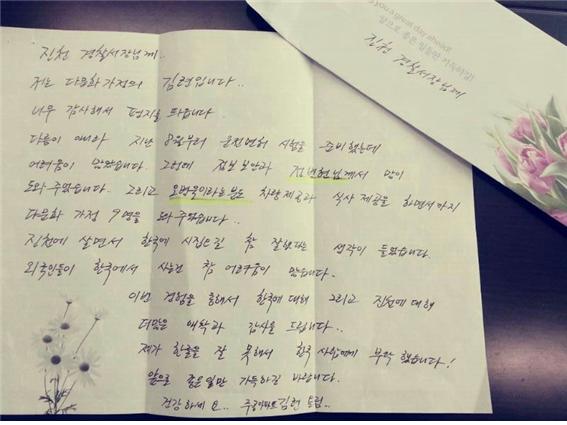 진천 경찰서장님께..
저는 다문화가정의 김현입니다..
너무 감사해서 편지를 드립니다
다름이 아니라 지난 8월부터 운전면허 시험을 준비했는데
어려움이 많았습니다. 그런데 정보보안과 님께서 많이
도와주었습니다. 그리고 분도 차량제공과 식사 제공을 하면서까지
다문화 가정 9명을 도와주었습니다..
진천에 살면서 한국에 시집오길 참 잘했다는 생각이 들었습니다.
외국인들이 한국에서 사는건 참 어려움이 많습니다.
이번 경험을 통해서 한국에 대해 그리고 진천에 대해
더많은 애착과 감사를 드립니다..
제가 한글을 잘 못해서 한국사람에게 부탁했습니다!
앞으로 좋은일만 가득하길 바랍니다.
건강하세요.. 주공아파트 김현 드림..
you a great day ahead!
앞으로 좋은 일들만 가득하길!
진천 경찰서장님께